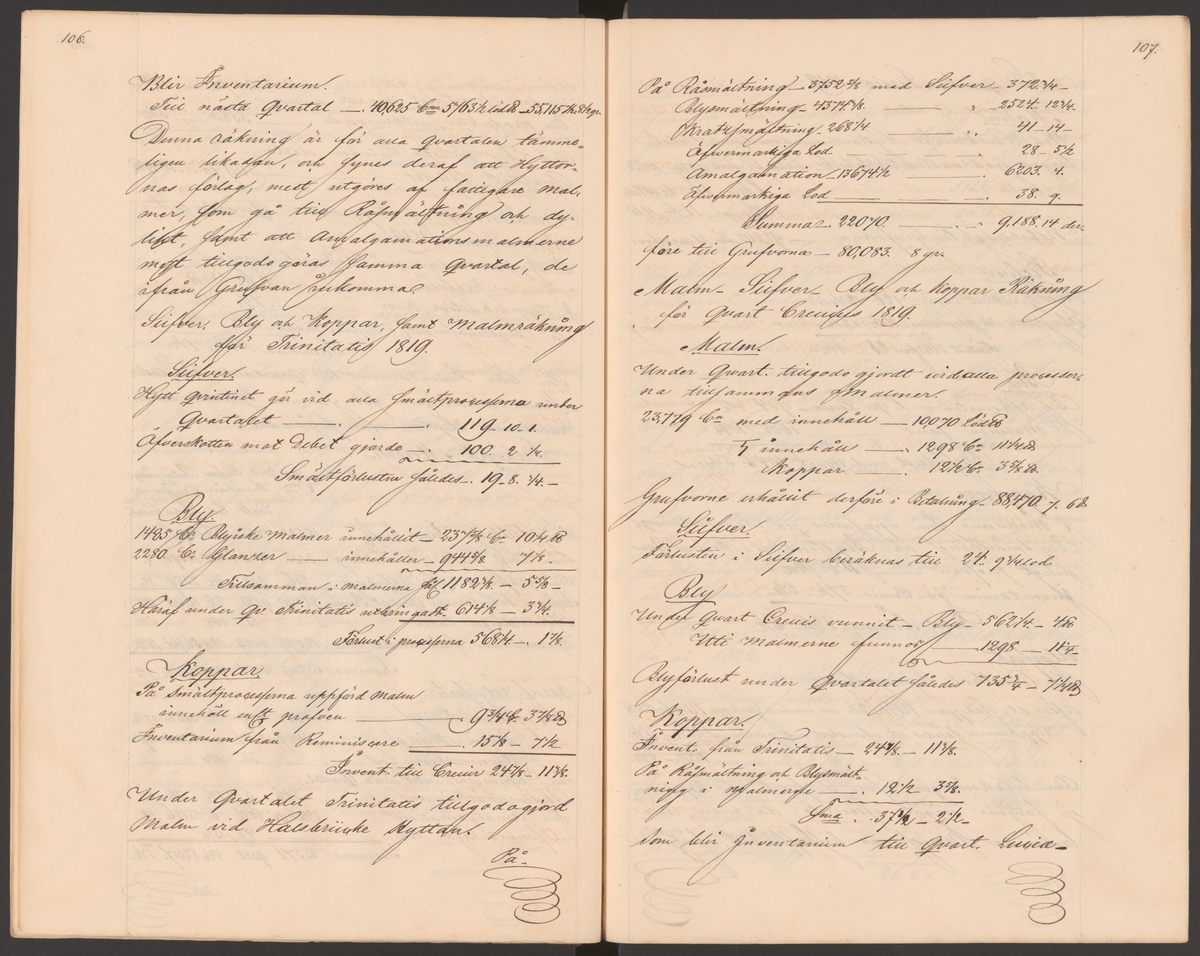 106.
Blir Inventarium.
Till nästa Qvartal — 40,625 Cnr 5763½ Löd
Denna räkning är för alla qvartalen tämme-
ligen likadan, och synes deraf att Hyttor-
nas förlag, mest utgöres af fattigare Mal-
mer, som gå till Råsmältning och dy-
likt, samt att Amalgamationsmalmerne
mest tillgodogöras samma Qvartal, de
ifrån Grufvan inkomma.
Silfver, Bly och Koppar, samt Malmräkning
för Trinitatis 1819.
Silfver.
Hytt qvintinet gör vid alla smältprocesserna under
Qvartalet — . — . 119. 10. 1.
Öfverskotten mot Debet gjorde — . 100. 2 ¼.
Smältförlusten således. 19. 8. ¾ —
Bly.
1485 Cr Blyiske Malmer innehållit — 237⅝ Cr 10¼ ℔
2280. Cr Glanzer — innehåller — 944⅝ 7⅛ —
Tillsamman i malmerna 1182⅜ — 5⅜ —
Häraf under Qv. Trinitatis utbringadt 614⅛ — 3¾.
Förlust i processerna 568¼ — . 1⅝.
Koppar.
På Smältprocesserna uppförd Malm
innehöll enl. profven — . 9¾ Cr. 3⅞ ℔
Inventarium från Reminiscere — . 15⅛ — 7½
Invent. till Crucis 24⅞ — 11⅜.
Under Qvartalet Trinitatis tillgodogjord
Malm vid Halsbrücke Hyttan.
På
107.
På Råsmältning — 3752⅝ med Silfver — 372.¾ —
Blysmältning — 4374⅛. — " 2524. 12¾.
Kratzsmältning. 268¼ — " . 41 — 14 —
Öfvermarkiga Lod — — . 28 — 5½
Amalgamation. 13674½ — . 6203. 4.
Öfvermarkiga Lod — — . 38. 9.
Summa. 22070. — . — 9,188. 14 der-
före till Grufvorna — 80,083. 8 gr.
Malm — Silfver — Bly och Koppar Räkning
för Qvart Crucis 1819.
Malm.
Under Qvart. tillgodogjordt vid alla processer-
na tillsammans Malmer.
23,779 Cr med innehåll — 10070 Löd
♄ innehåll — . 1298 Cr 11¼ ℔
Koppar — . 12½ Cr 3⅜ ℔
Grufvorne erhållit derföre i Betalning — 88,470. 7. 6
Silfver.
Förlusten i Silfver beräknas till 24. 9¾ lod.
Bly
Under Qvart Crucis vunnit — Bly — 562¼. — 4 ℔
Uti Malmerne funnos — 1298 — 11¼ —
Blyförlust under Qvartalet således 735¾ — 7¼ ℔
Koppar.
Invent. från Trinitatis — 24⅞. — 11⅜.
På Råsmältning och Blysmält-
ning i Malmerne — . 12½ 3⅜.
Sma . 37½ — 2½ —
som blir Inventarium till Qvart. Luciæ —